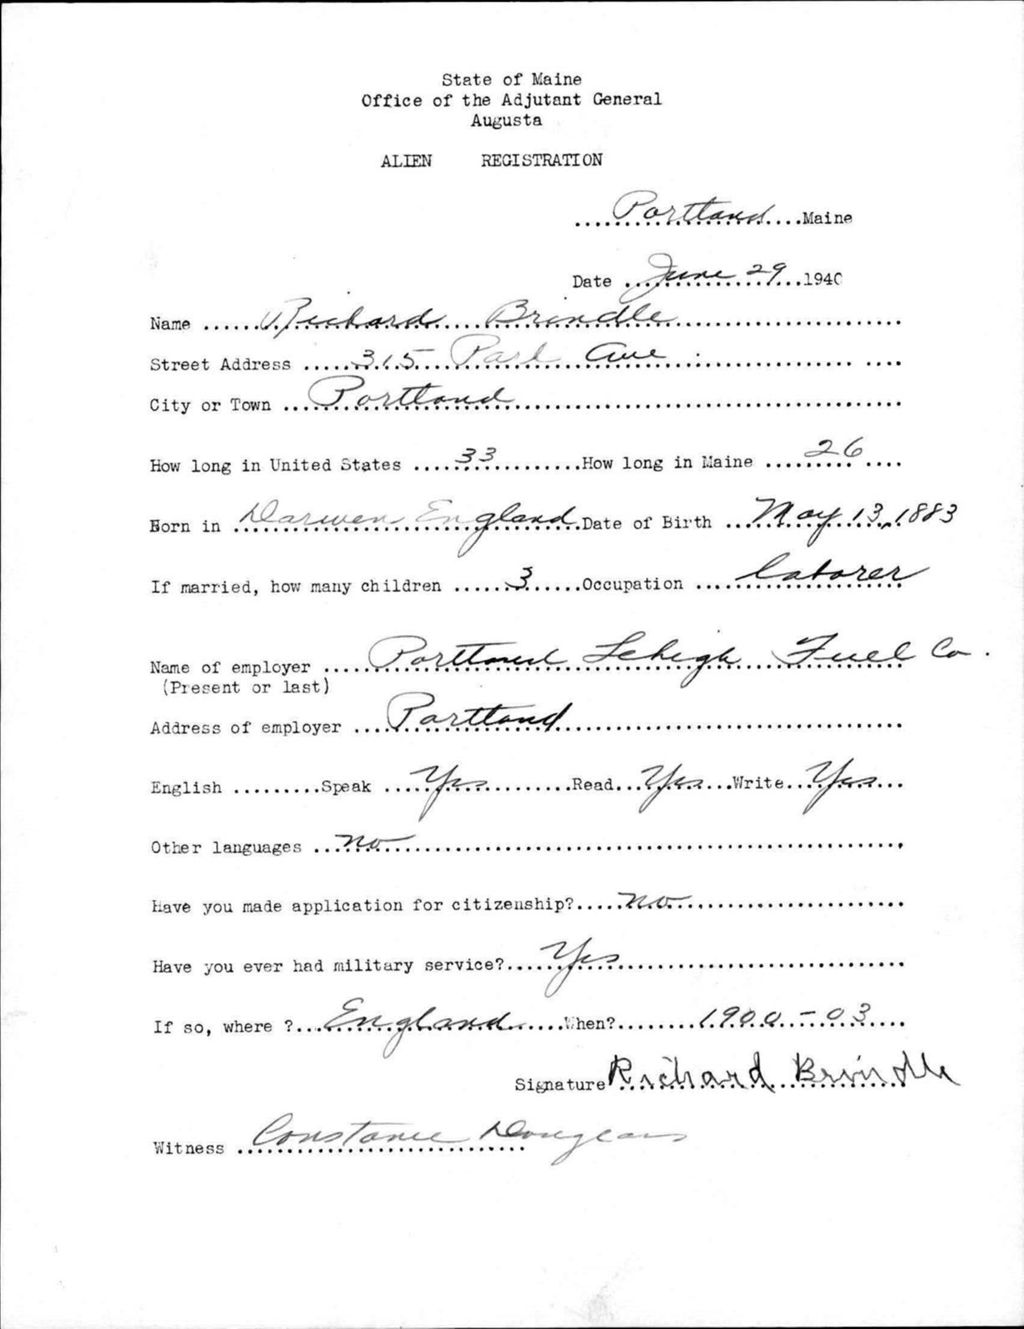 State of Maine
Office of the Adjutant General
Augusta
ALIEN REGISTRATION
Portland Maine
Date June 29 1940
Name Richard Brindle
Street Address 315 Park Ave
City or Town Portland
How long in United States 33 How long in Maine 26
Born in Darwen England Date of Birth May 13, 1883
If married, how many children 3 Occupation Laborer
Name of employer Portland Lehigh Fuel Co.
(Present or last)
Address of employer Portland
English Speak Yes Read Yes Write Yes
Other languages no
Have you made application for citizenship? no
Have you ever had military service? Yes
If so, where ? England When? 1900-03
Signature Richard Brindle
Witness Constance